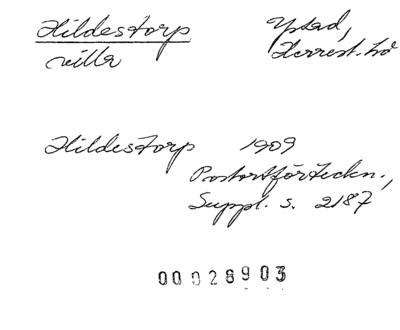 Hildestorp
villa
Ystad,
Herrest. hd
Hildestorp 1909
Postortförteckn.,
Suppl. s. 2187
00028903